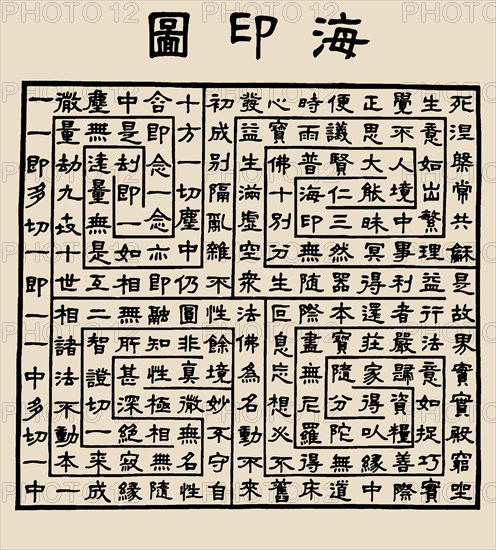 海印圖
死涅槃常共龢是故界實寶殿窮坐
生意如出繁理益行法意如捉巧實
覺不人境中事利者嚴歸資糧善際
正思大能昧冥得還莊家得以緣中
便議賢仁三然器本寶隨分陀無道
時雨普海印無隨際盡無尼羅得床
心寶佛十別分生叵息妄想必不舊
發益生滿虛空衆法佛為名動不來
初成別隔亂雜不性餘境妙不守自
十方一切塵中仍圓非真微無名性
含即念一念亦即融知性極相無隨
中是劫即一如相無所甚深絕寂緣
塵無遠量無是互二智證切一來成
微量劫九世十世相諸法不動本一
一一即多切一即一一中多切一中